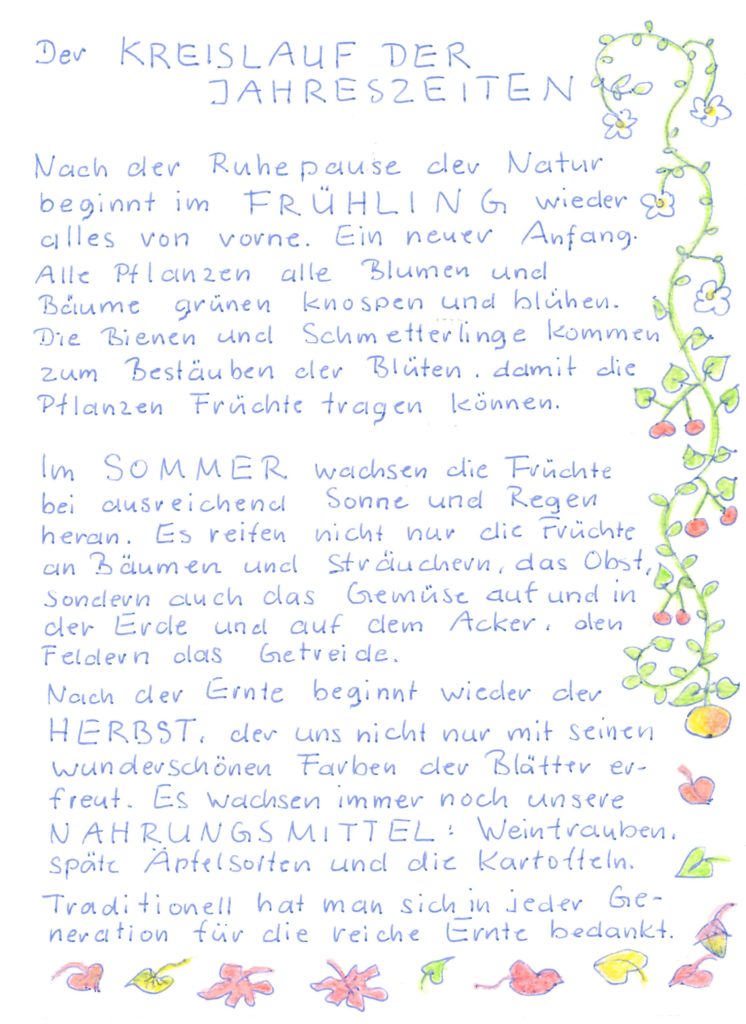 Der KREISLAUF DER
JAHRESZEITEN
Nach der Ruhepause der Natur
beginnt im FRÜHLING wieder
alles von vorne. Ein neuer Anfang.
Alle Pflanzen alle Blumen und
Bäume grünen knospen und blühen.
Die Bienen und Schmetterlinge kommen
zum Bestäuben der Blüten, damit die
Pflanzen Früchte tragen können.
Im SOMMER wachsen die Früchte
bei ausreichend Sonne und Regen
heran. Es reifen nicht nur die Früchte
an Bäumen und Sträuchern, das Obst,
sondern auch das Gemüse auf und in
der Erde und auf dem Acker, den
Feldern das Getreide.
Nach der Ernte beginnt wieder der
HERBST, der uns nicht nur mit seinen
wunderschönen Farben der Blätter er-
freut. Es wachsen immer noch unsere
NAHRUNGSMITTEL: Weintrauben,
späte Äpfelsorten und die Kartoffeln.
Traditionell hat man sich in jeder Ge-
neration für die reiche Ernte bedankt.